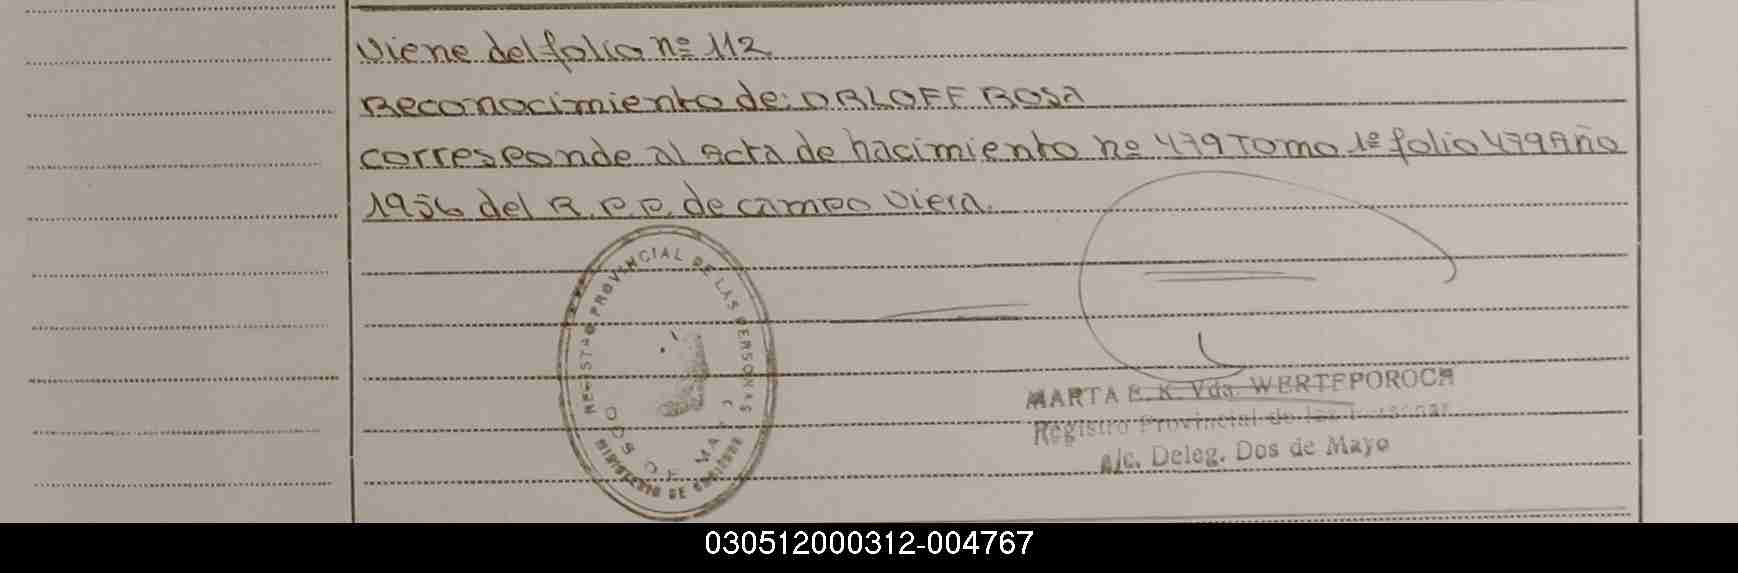 Viene del folio nº 112
Reconocimiento de: ORLOFF ROSA
corresponde al acta de nacimiento nº 479 Tomo 1º folio 479 Año
1956 del R.P.P. de campo viera.
REGISTRO PROVINCIAL DE LAS PERSONAS
DOS DE MAYO
MINISTERIO DE GOBIERNO
MARTA E. K. Vda. WERTEPOROCH
Registro Provincial de las Personas
a/c. Deleg. Dos de Mayo
030512000312-004767